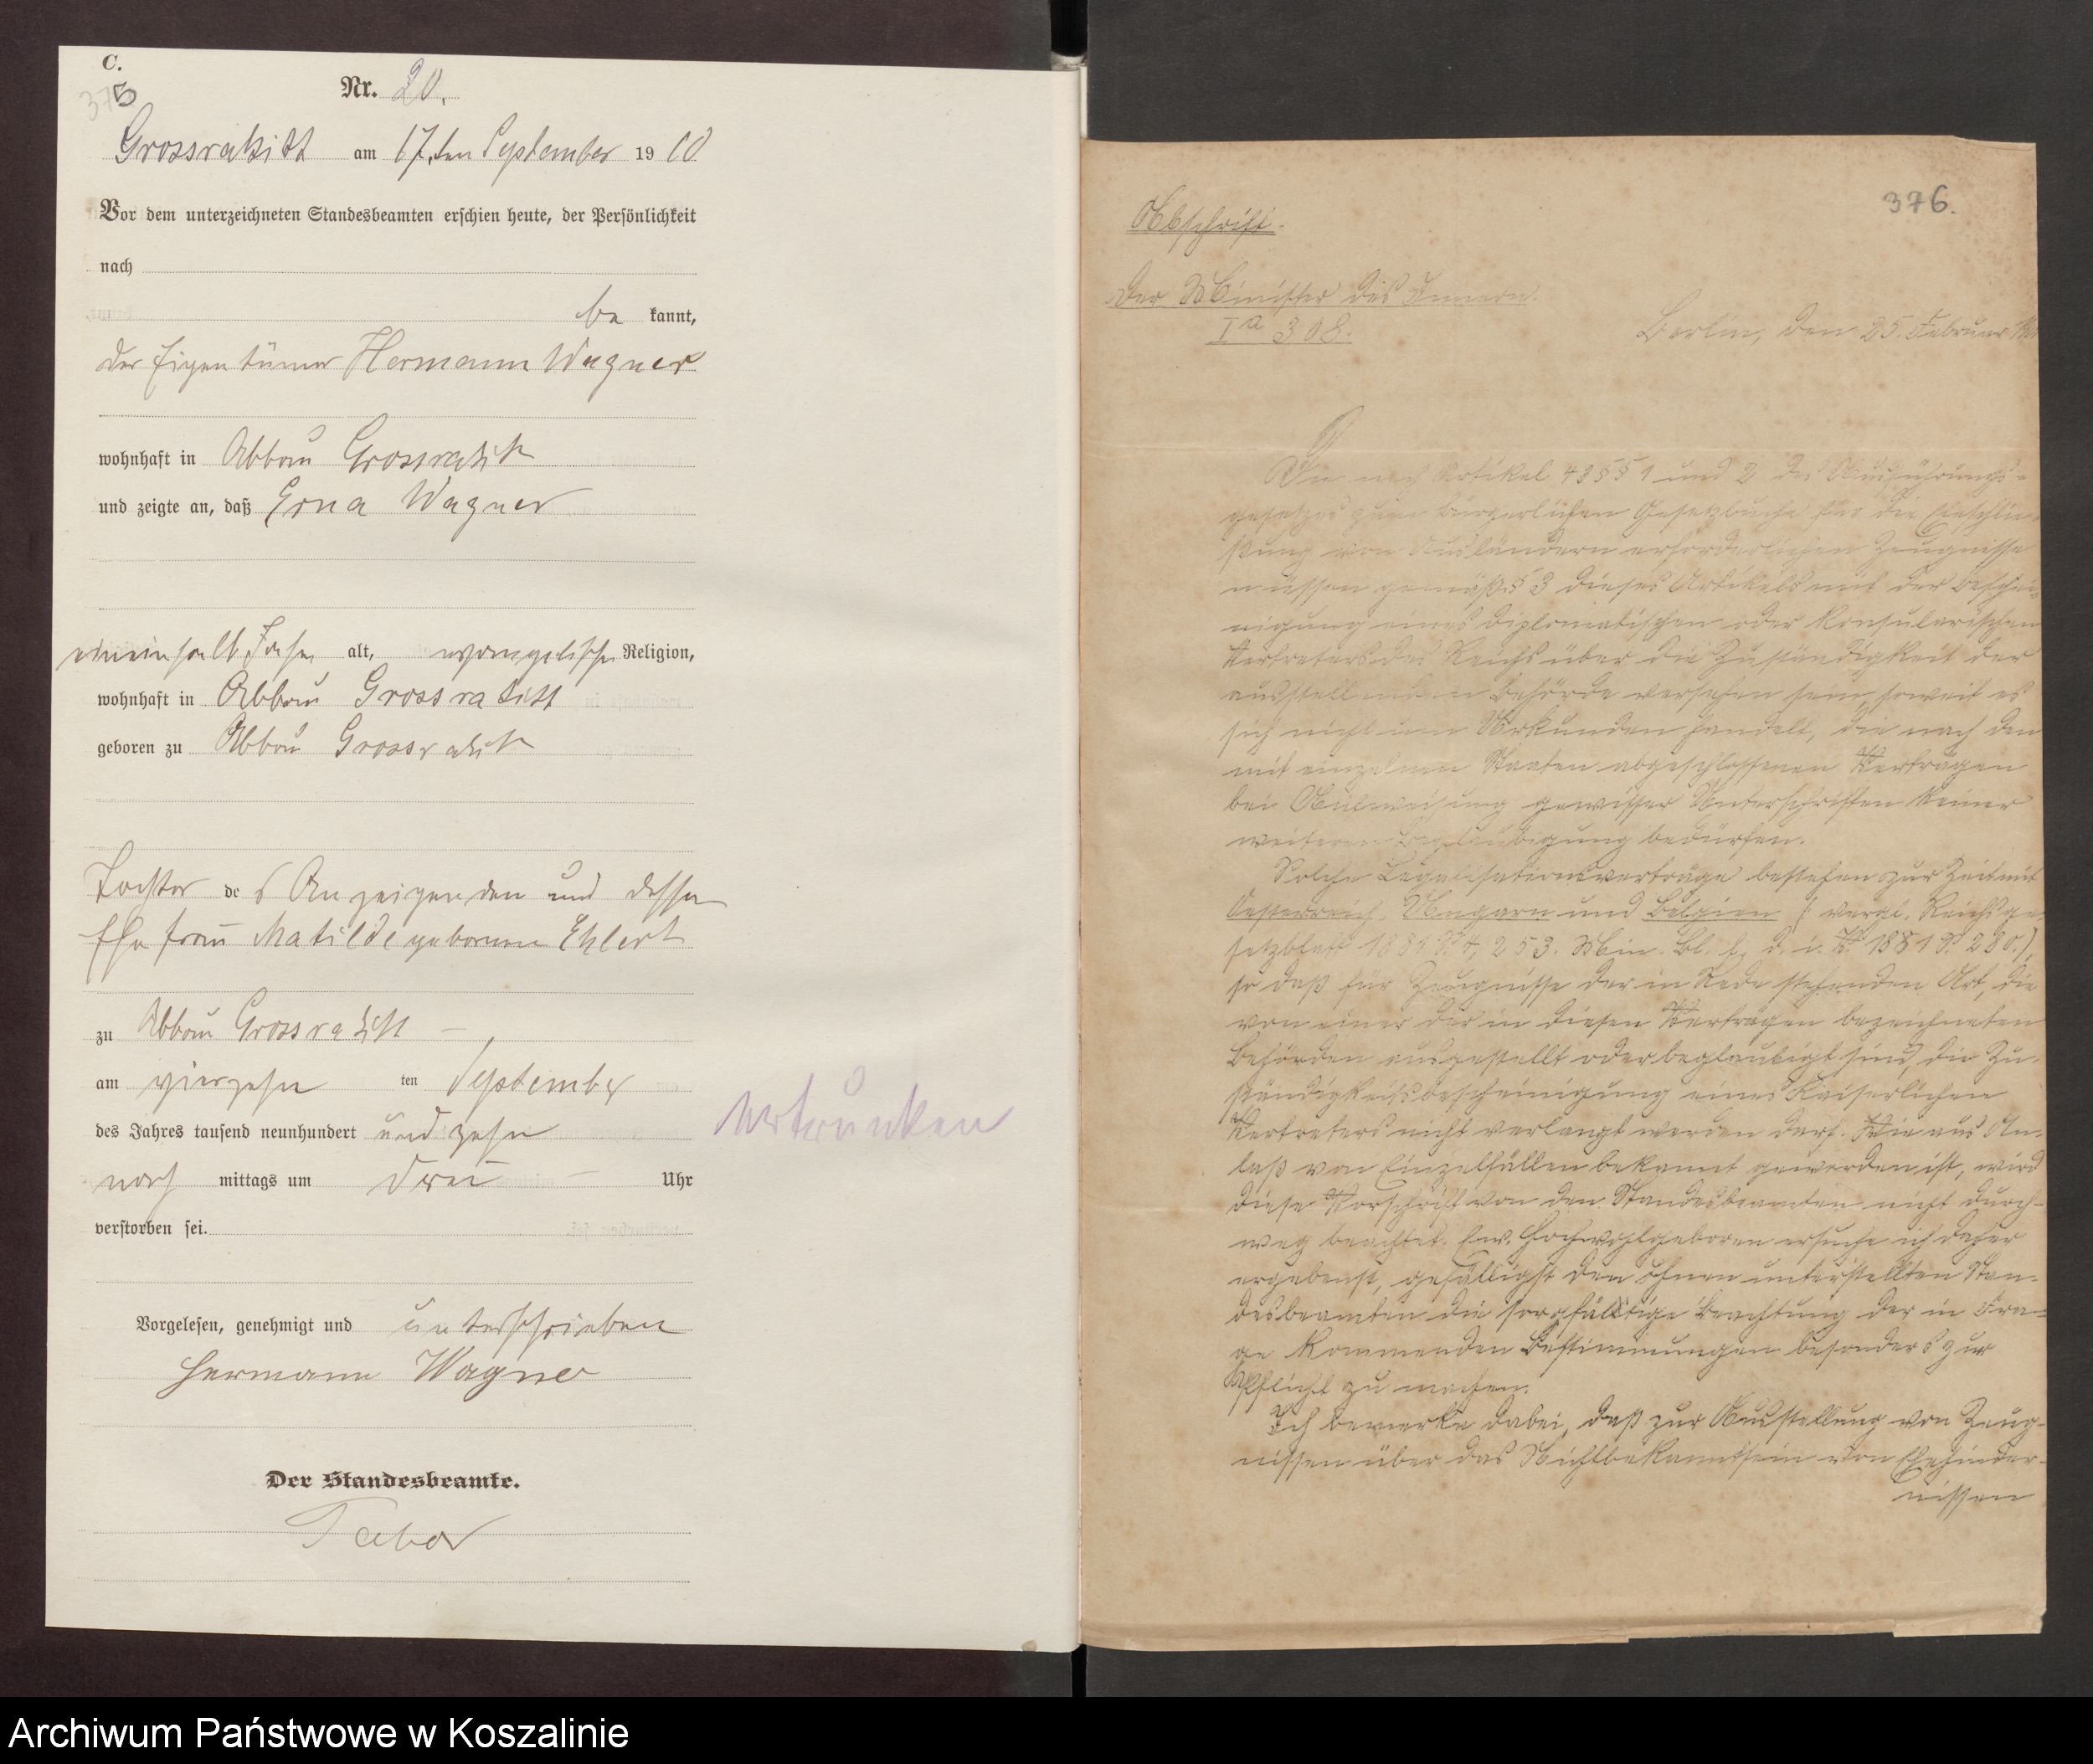 C.
375
Nr. 20.
Grossrakitt am 17ten September 1910
Vor dem unterzeichneten Standesbeamten erschien heute, der Persönlichkeit
nach
be kannt,
der Eigentümer Hermann Wagner
wohnhaft in Abbau Grossrakitt
und zeigte an, daß Erna Wagner
eineinhalb Jahr alt, evangelischer Religion,
wohnhaft in Abbau Grossrakitt
geboren zu Abbau Grossrakitt
Tochter des Anzeigenden und dessen
Ehefrau Matilde geborenen Ehlert
zu Abbau Grossrakitt
am vierzehn ten September
des Jahres tausend neunhundert und zehn
nach mittags um drei Uhr
verstorben sei.
ertrunken
Vorgelesen, genehmigt und unterschrieben
Hermann Wagner
Der Standesbeamte.
Tabor
376.
Abschrift.
Der Minister des Innern.
Ia 308.
Berlin, den 25. Februar
Die nach Artikel 43 §§ 1 und 2 des Ausführungs-
gesetzes zum Bürgerlichen Gesetzbuche für die Eheschlie-
ßung von Ausländern erforderlichen Zeugnisse
müssen gemäß § 3 dieses Artikels mit der Beschei-
nigung eines diplomatischen oder konsularischen
Vertreters des Reichs über die Zuständigkeit der
ausstellenden Behörde versehen sein, soweit es
sich nicht um Urkunden handelt, die nach den
mit einzelnen Staaten abgeschlossenen Verträgen
bei Aufweisung gewisser Unterschriften keiner
weiteren Beglaubigung bedürfen.
Solche Legalisationsverträge bestehen zur Zeit mit
Oesterreich-Ungarn und Belgien (vergl. Reichsge-
setzblatt 1881 S. 4, 253. Min. Bl. f. d. i. V. 1881 S. 280.),
so daß für Zeugnisse der in Rede stehenden Art, die
von einer der in diesen Verträgen bezeichneten
Behörden ausgestellt oder beglaubigt sind, die Zu-
ständigkeitsbescheinigung eines Kaiserlichen
Vertreters nicht verlangt werden darf. Wie aus An-
laß von Einzelfällen bekannt geworden ist, wird
diese Vorschrift von den Standesbeamten nicht durch-
weg beachtet. Ew. Hochwohlgeboren ersuche ich daher
ergebenst, gefälligst den Ihnen unterstellten Stan-
desbeamten die sorgfältige Beachtung der in Fra-
ge kommenden Bestimmungen besonders zur
Pflicht zu machen.
Ich bemerke dabei, daß zur Ausstellung von Zeug-
nissen über das Nichtbekanntsein von Ehehinder-
nissen
Archiwum Państwowe w Koszalinie